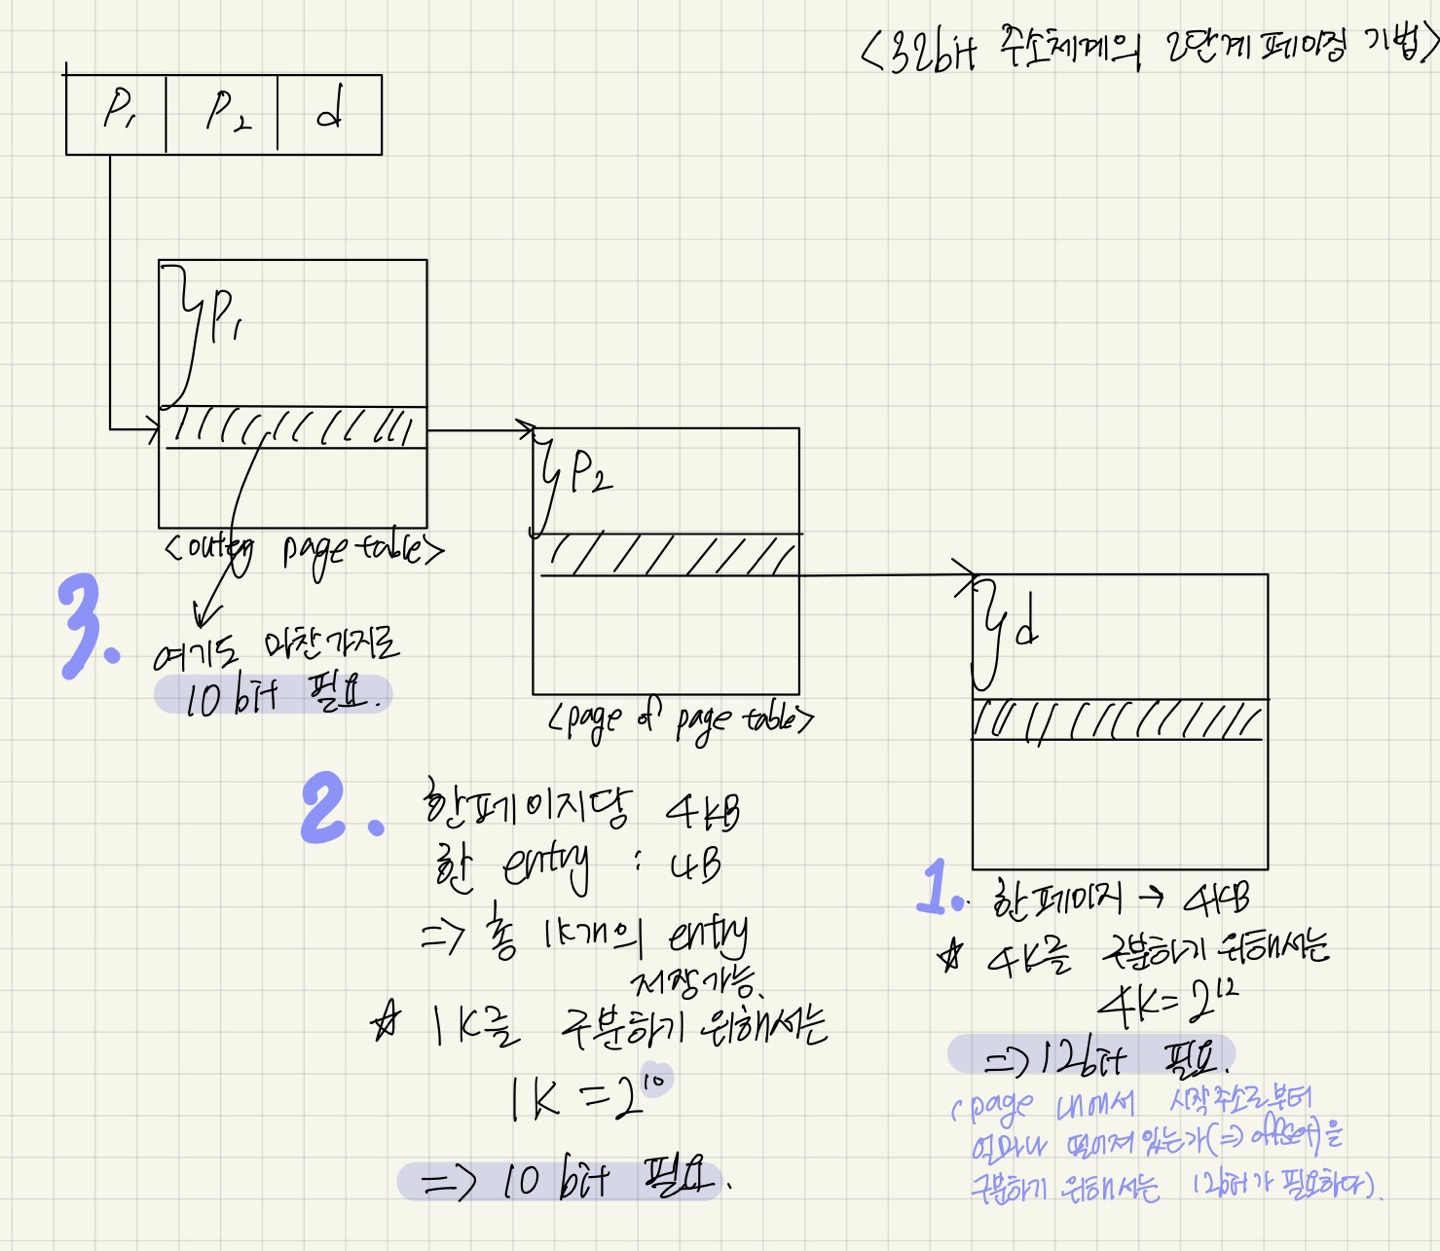 <32bit 주소체계의 2단계 페이징 기법>
P₁ P₂ d
P₁
<outer page table>
P₂
<page of page table>
d
3.
여기도 마찬가지로
10 bit 필요.
2.
한페이지당 4kB
한 entry : 4B
=> 총 1K개의 entry
저장가능.
☆ 1K를 구분하기 위해서는
1K = 2¹⁰
=> 10 bit 필요.
1. 한페이지 → 4KB
☆ 4K를 구분하기 위해서는
4K = 2¹²
=> 12bit 필요.
(page 내에서 시작주소로부터
얼마나 떨어져 있는가(=> offset)을
구분하기 위해서는 12bit가 필요하다).